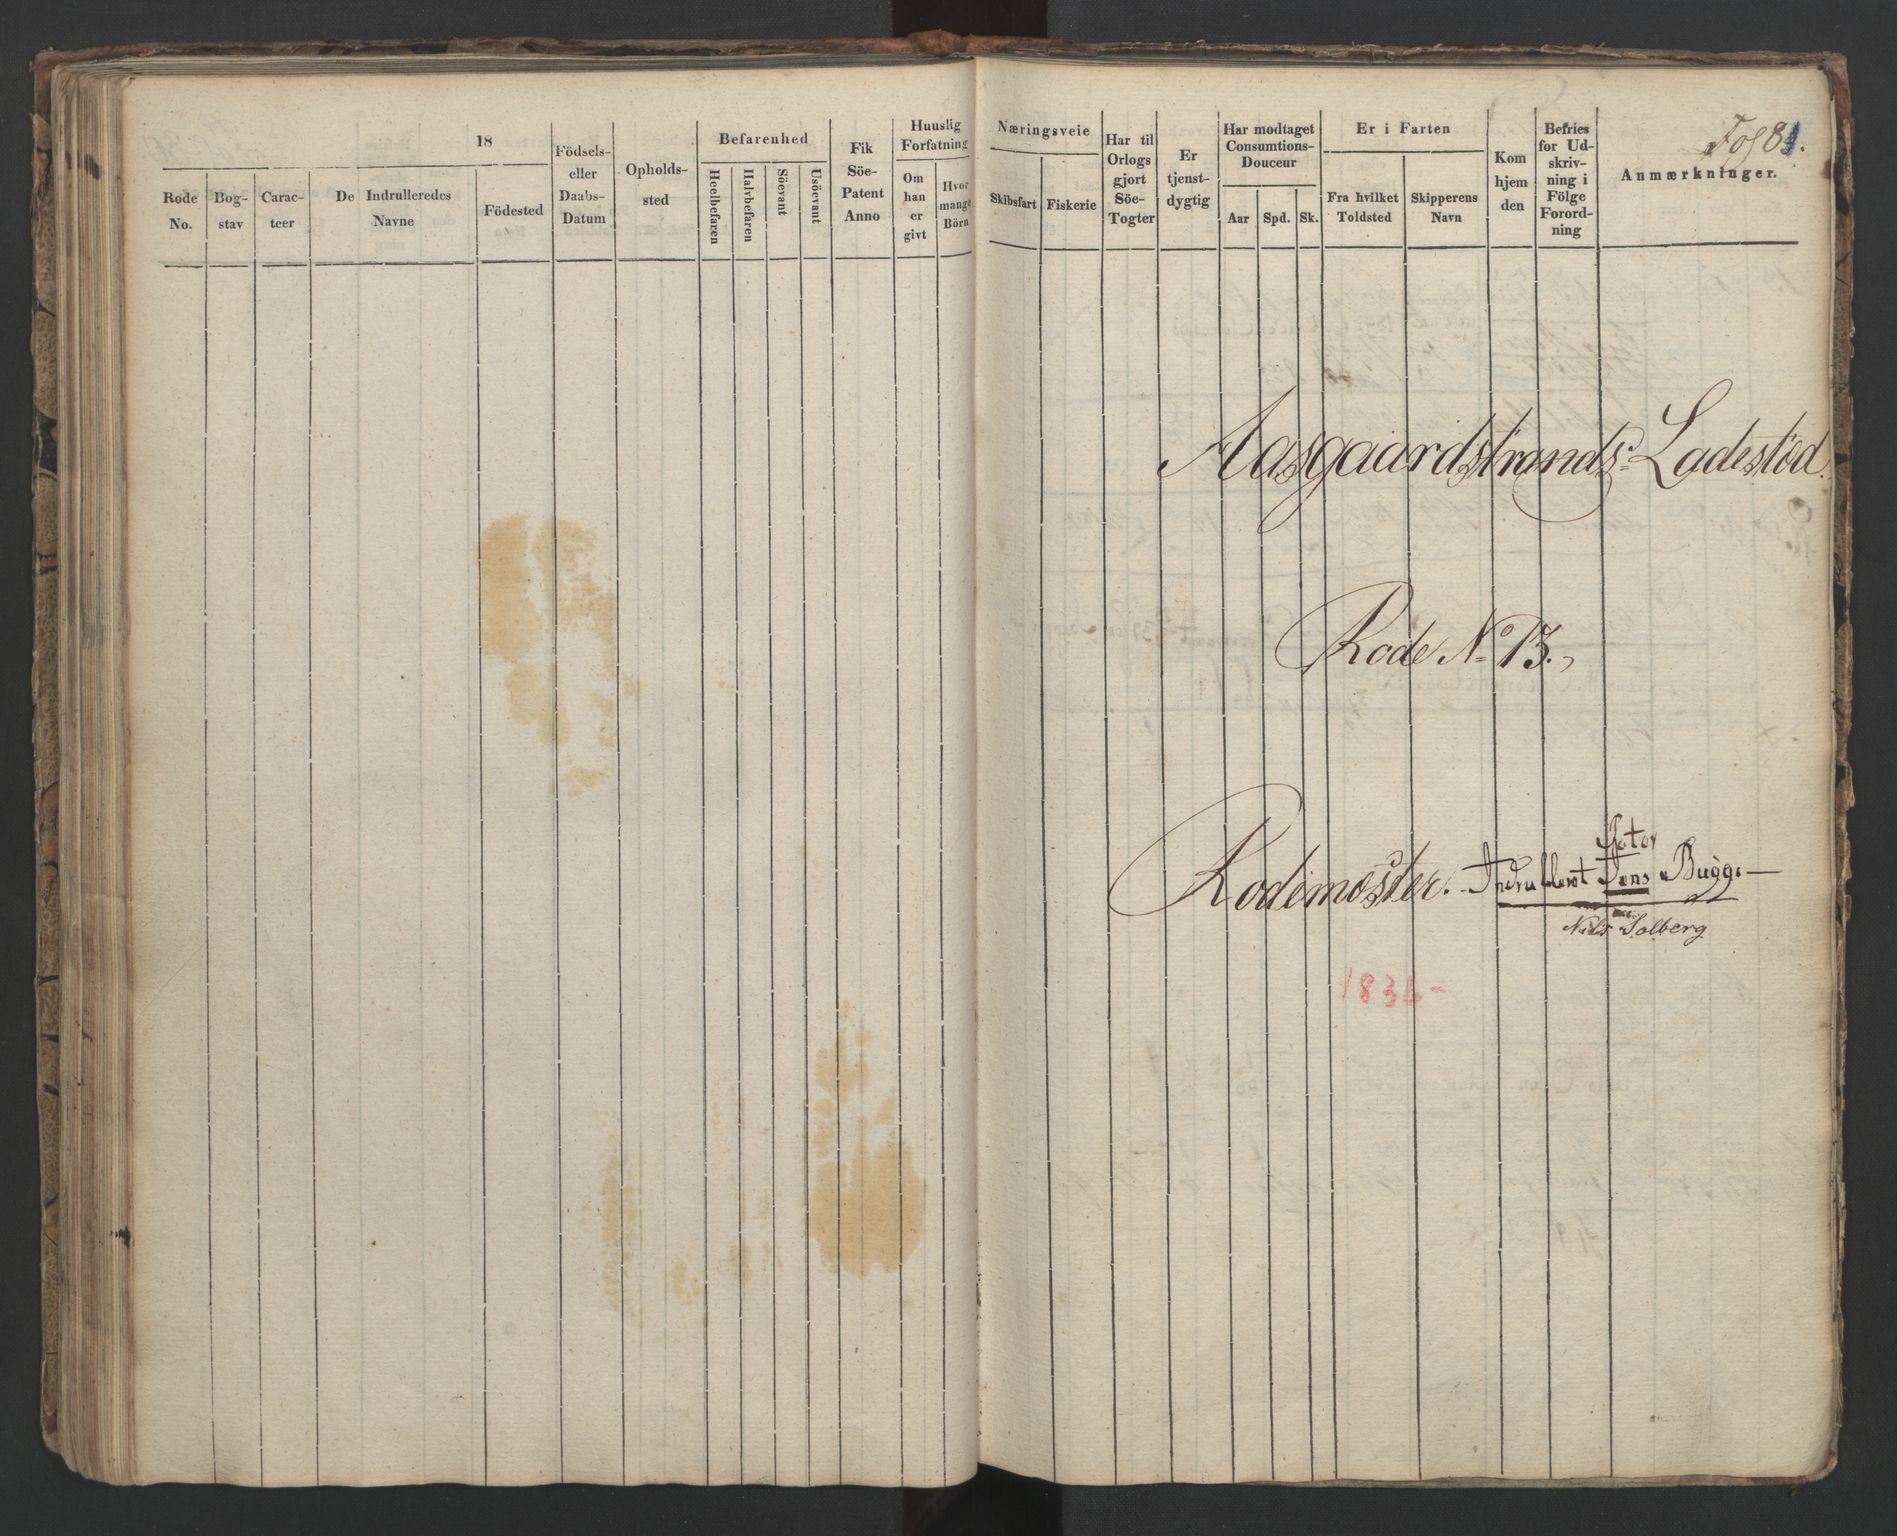 18
Rode No.
Bog-stav
Carac-teer
De Indrulleredes Navne
Födested
Födsels- eller Daabs-Datum
Opholds-sted
Befarenhed
Heelbefaren
Halvbefaren
Söevant
Usöevant
Fik Söe-Patent Anno
Huuslig Forfatning
Om han er givt
Hvor mange Börn
Næringsveie
Skibsfart
Fiskerie
Har til Orlogs gjort Söe-Togter
Er tjenst-dygtig
Har modtaget Consumtions-Douceur
Aar
Spd.
Sk.
Er i Farten
Fra hvilket Toldsted
Skipperens Navn
Kom hjem den
Befries for Ud-skriv-ning i Fölge Forord-ning
Anmærkninger.
Fol 81.
Aasgaardstrands Ladestöd.
Rode No 13.
Rodemester. Indrulleret Jens Bugge
Nils Solberg